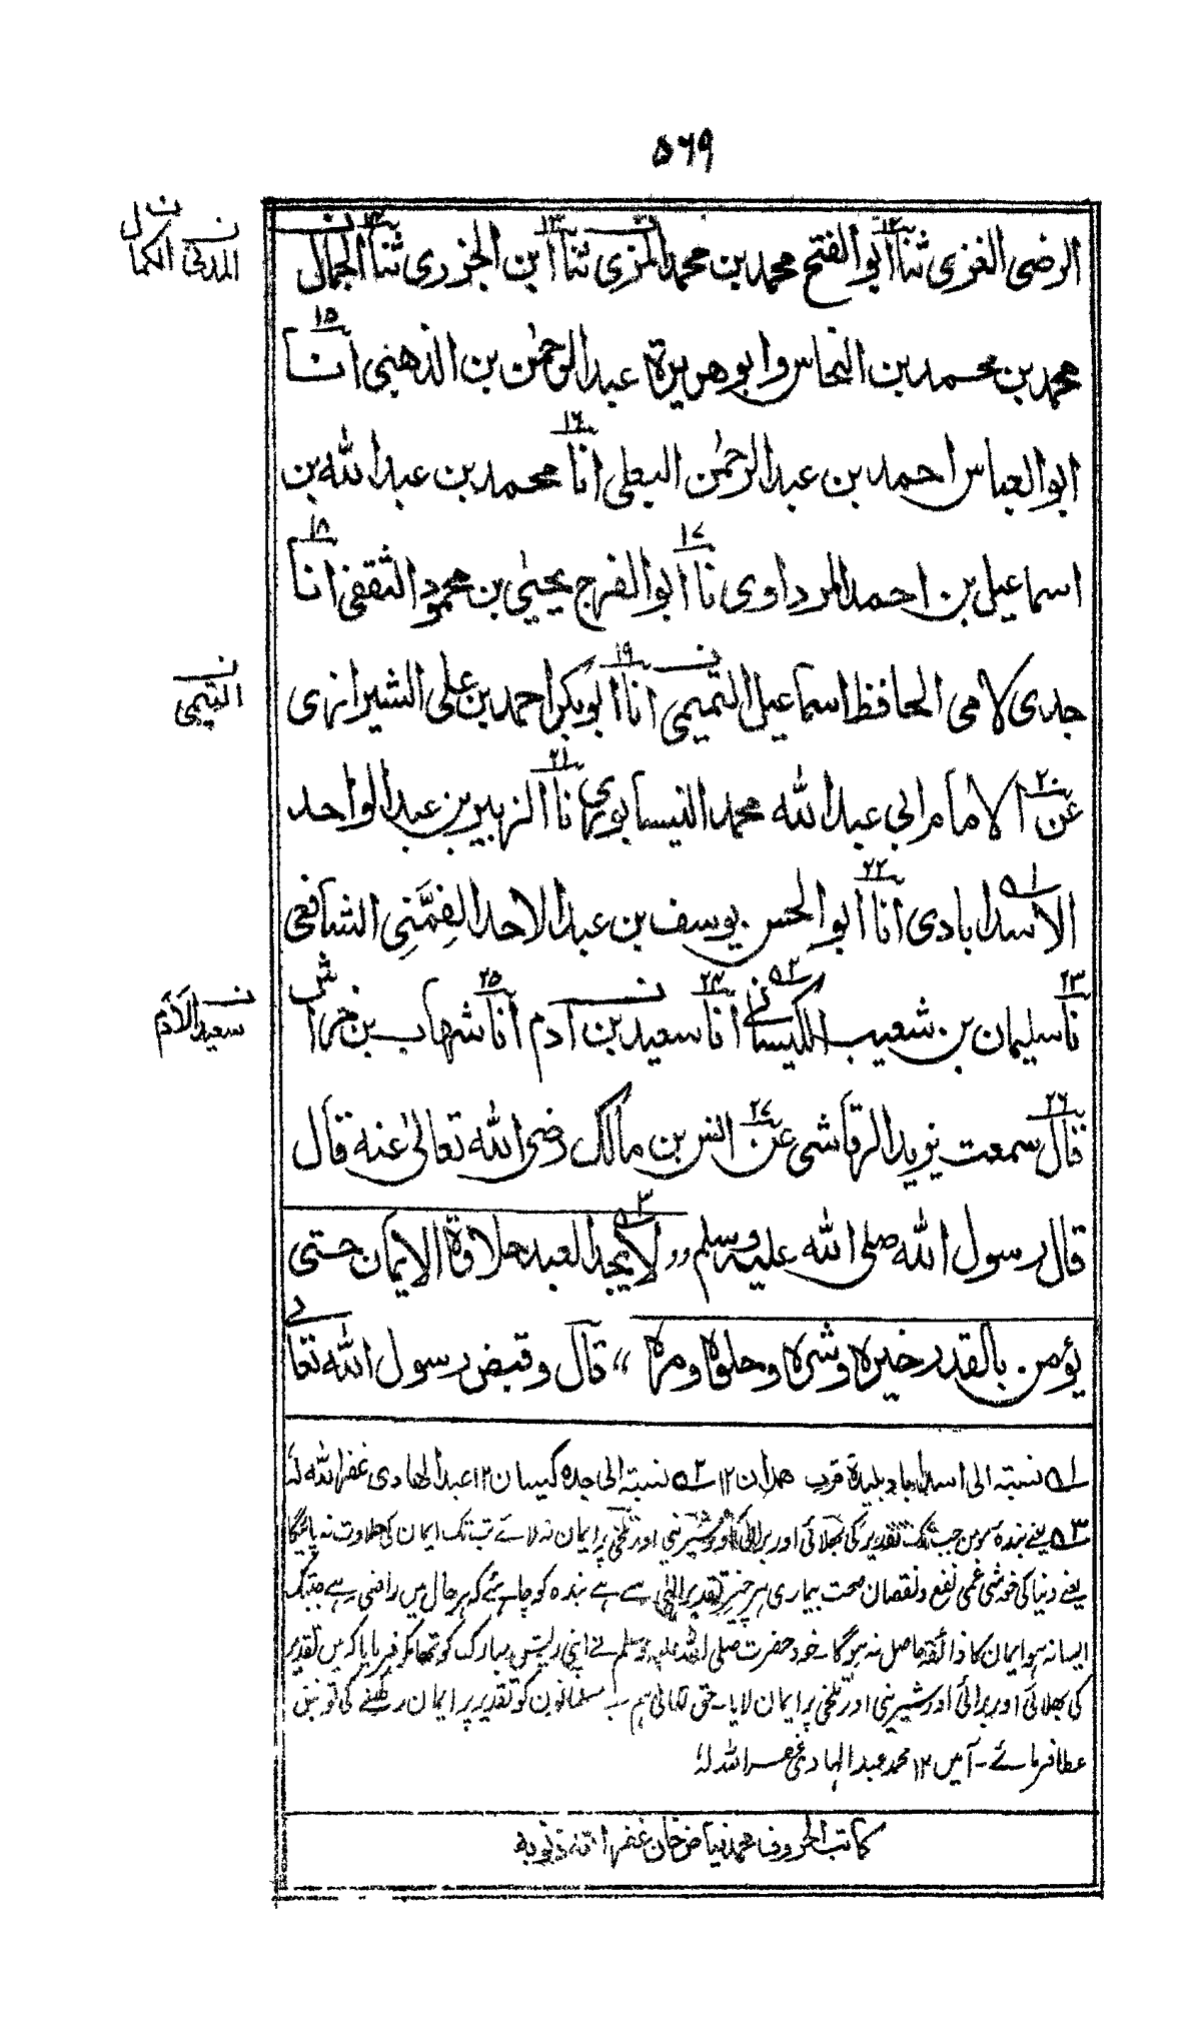 ۵۶۹
الرضی الغزی ثنا ۱۲ ابو الفتح محمد بن محمد المزی ثنا ۱۳ ابن الجزری ثنا ۱۴ الجمال
المدنی الکمال
محمد بن محمد بن النحاس وابو هریرة عبد الرحمٰن بن الذهبی انا ۱۵
ابو العباس احمد بن عبد الرحمٰن البعلی انا ۱۶ محمد بن عبد الله بن
اسماعیل بن احمد المرداوی نا ۱۷ ابو الفرج یحییٰ بن محمود الثقفی انا ۱۸
جدی لامی الحافظ اسماعیل التمیمی انا ۱۹ ابو بکر احمد بن علی الشیرازی
التیمی
عن ۲۰ الامام ابی عبد الله محمد النیسابوری نا ۲۱ الزبیر بن عبد الواحد
الاسدابادی ۱ انا ۲۲ ابو الحسن یوسف بن عبد الاحد القِمَّنِی الشافعی
نا ۲۳ سلیمان بن شعیب الکیسانی ۲ انا ۲۴ سعید بن آدم انا ۲۵ شهاب بن خراش
سعید الآدم
قال ۲۶ سمعت یزید الرقاشی عن ۲۷ انس بن مالک رضی الله تعالیٰ عنه قال
قال رسول الله صلی الله علیه وسلم ”لا ۳ یجد العبد حلاوة الایمان حتی
یؤمن بالقدر خیره وشره وحلوه ومره“ قال وقبض رسول الله تعالی
۱ نسبته الی اسداباد بلیدة قرب همدان ۱۲ ۲ نسبته الی جده کیسان ۱۲ عبد الهادی غفر الله لهٗ
۳ یعنے بندہ مومن جب تک تقدیر کی بھلائی اور برائی اور شیرینی اور تلخی پر ایمان نہ لائے تب تک ایمان کی حلاوت نہ پائیگا
یعنے دنیا کی خوشی غمی نفع و نقصان صحت بیماری ہر چیز تقدیر الٰہی سے ہے بندہ کو چاہئے کہ ہر حال میں راضی رہے جبتک
ایسا نہ ہو ایمان کا ذائقہ حاصل نہ ہوگا۔ خود حضرت صلی اللہ علیہ وسلم نے اپنی ریش مبارک کو تھام کر فرمایا کہ میں تقدیر
کی بھلائی اور برائی اور شیرینی اور تلخی پر ایمان لایا۔ حق تعالیٰ ہم سب مسلمانوں کو تقدیر پر ایمان رکھنے کی توفیق
عطا فرمائے۔ آمین ۱۲ محمد عبد الہادی غفر اللہ لہٗ
کاتب الحروف محمد نیاض خان غفر اللہ ذنوبہ